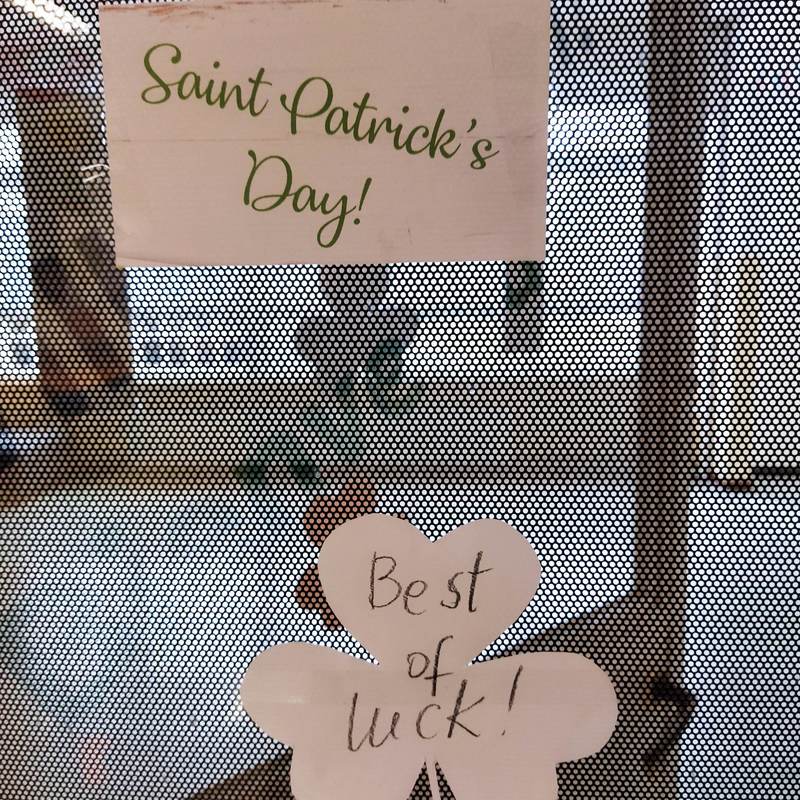 Saint Patrick's
Day!
Best
of
luck!